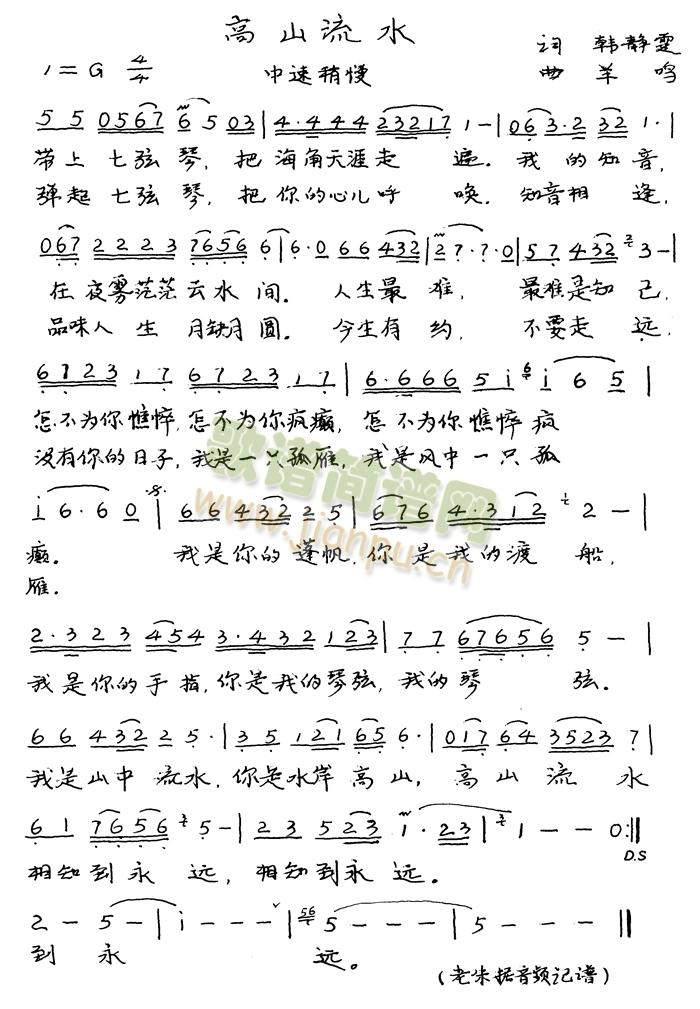 高山流水
词 韩静霆
1=G 4/4 中速稍慢 曲 羊鸣
5 5 0567 6 5 03 | 4·444 23217 1 - | 06 3·2 32 1· |
带上七弦琴，把海角天涯走遍。我的知音，
弹起七弦琴，把你的心儿呼唤。知音相逢，
067 2223 7656 6 | 6·0 66 432 | 2 7··7·0 | 57 432 2 3 - |
在夜雾茫茫云水间。人生最难，最难是知己，
品味人生月缺月圆。今生有约，不要走远，
6723 17 6723 17 | 6·666 5 i 6 i 6 5 |
怎不为你憔悴，怎不为你疯癫，怎不为你憔悴疯
没有你的日子，我是一只孤雁，我是风中一只孤
i 6·6 0 | 66 432 2·5 | 676 4·312 1/2 2 - |
癫。我是你的蓬帆，你是我的渡船，
雁。
2·323 454 3·432 123 | 77 67656 5 - |
我是你的手指，你是我的琴弦，我的琴弦。
66 432 25· | 35 121 65 6· | 017 64 3523 7 |
我是山中流水，你是水岸高山，高山流水
61 7656 3/2 5 - | 23 523 1·23 | 3/2 1 - - 0 :||
D.S
相知到永远，相知到永远。
2 - 5 - | i - - - | 56 5 - - - | 5 - - - ||
到永远。
(老朱据音频记谱)
歌谱简谱网
www.jianpu.cn